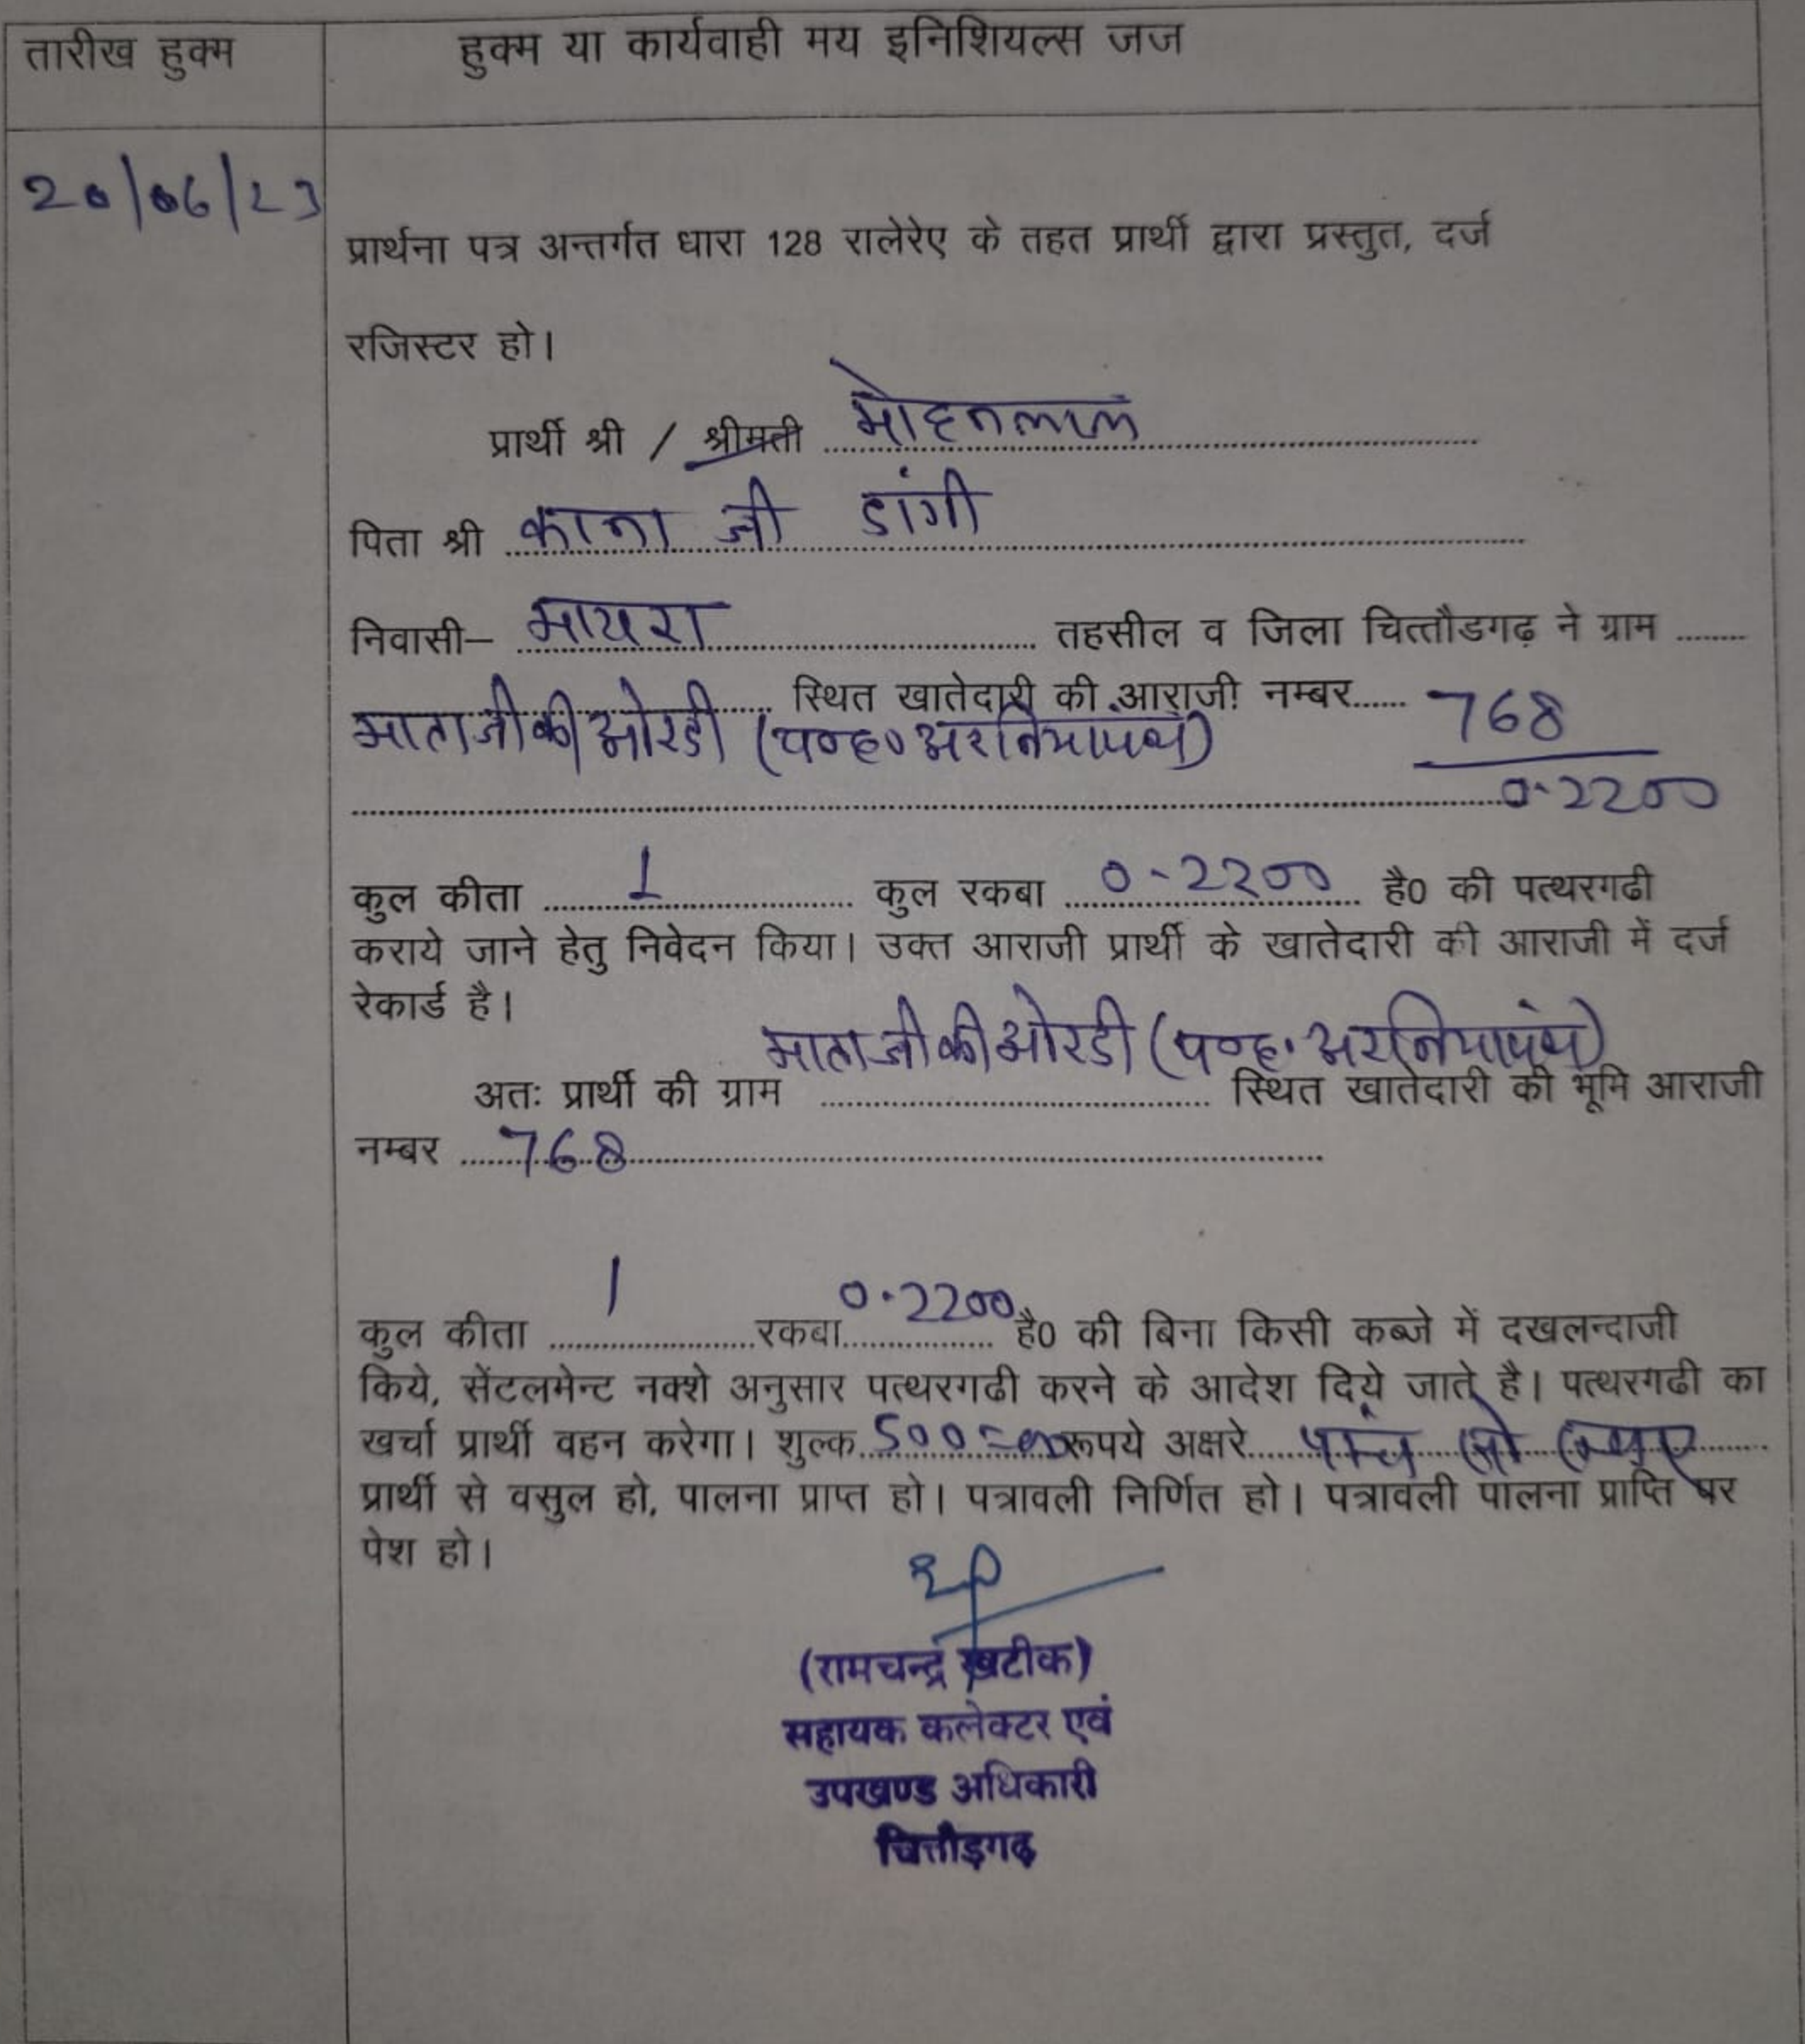 तारीख हुक्म
हुक्म या कार्यवाही मय इनिशियल्स जज
20/06/23
प्रार्थना पत्र अन्तर्गत धारा 128 रालेरेए के तहत प्रार्थी द्वारा प्रस्तुत, दर्ज
रजिस्टर हो।
प्रार्थी श्री / श्रीमती मोहनलाल
पिता श्री काना जी डांगी
निवासी– मायरा तहसील व जिला चित्तौडगढ़ ने ग्राम ........
स्थित खातेदारी की आराजी नम्बर...... 768
माताजी की ओरडी (प०ह० अरनियापंथ)
0.2200
कुल कीता 1 कुल रकबा 0-2200 है0 की पत्थरगढी
कराये जाने हेतु निवेदन किया। उक्त आराजी प्रार्थी के खातेदारी की आराजी में दर्ज
रेकार्ड है।
माताजी की ओरडी (प०ह. अरनियापंथ)
अतः प्रार्थी की ग्राम ........ स्थित खातेदारी की भूमि आराजी
नम्बर 768
कुल कीता 1 रकबा 0.2200 है0 की बिना किसी कब्जे में दखलन्दाजी
किये, सेंटलमेन्ट नक्शे अनुसार पत्थरगढी करने के आदेश दिये जाते है। पत्थरगढी का
खर्चा प्रार्थी वहन करेगा। शुल्क 500=00 रूपये अक्षरे पांच सौ रूपए
प्रार्थी से वसुल हो, पालना प्राप्त हो। पत्रावली निर्णित हो। पत्रावली पालना प्राप्ति पर
पेश हो।
(रामचन्द्र खटीक)
सहायक कलेक्टर एवं
उपखण्ड अधिकारी
चित्तौड़गढ़